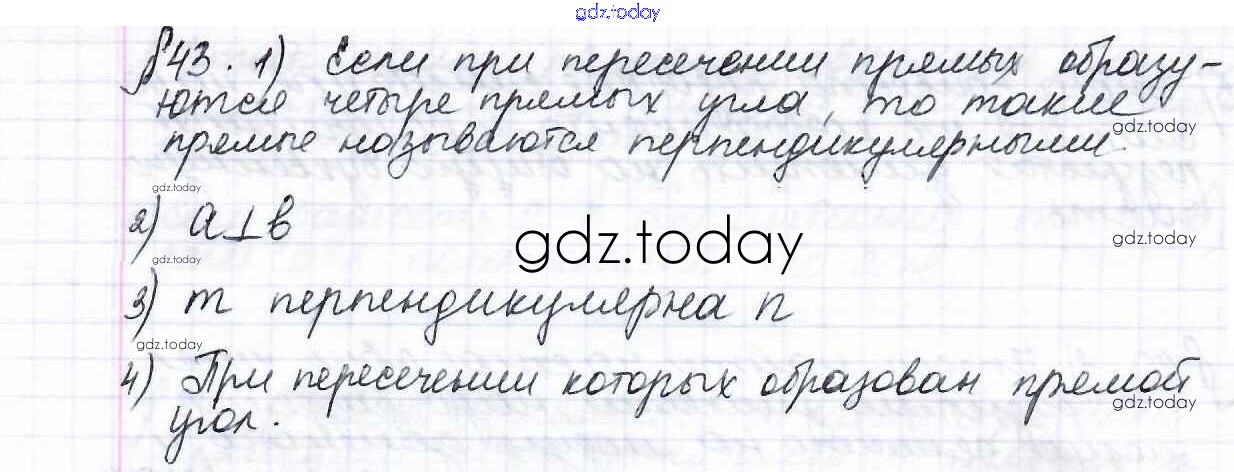 gdz.today
§43. 1) Если при пересечении прямых образу-
ются четыре прямых угла, то такие
gdz.today
прямые называются перпендикулярными.
gdz.today
2) a⊥b
gdz.today
gdz.today
gdz.today
3) m перпендикулярна n
gdz.today
4) При пересечении которых образован прямой
gdz.today
угол.